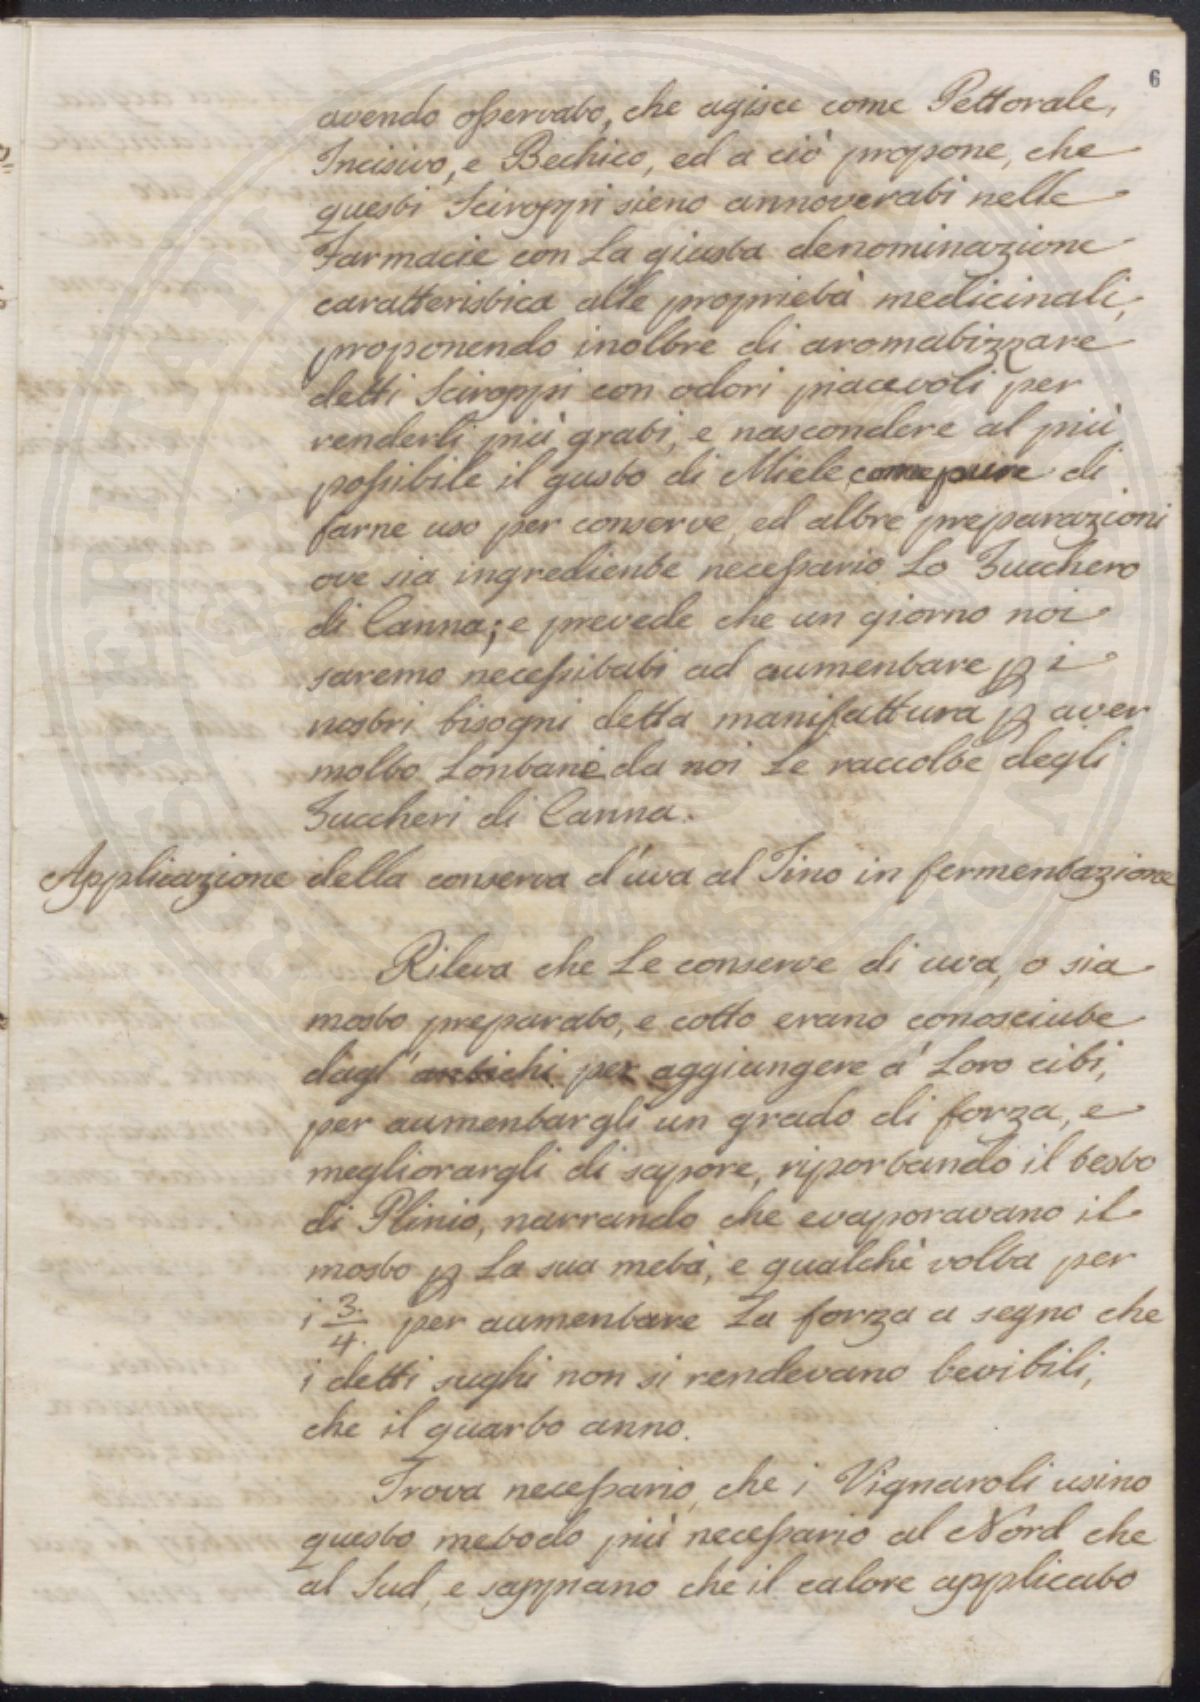 6
avendo osservato, che agisce come Pettorale,
Incisivo, e Bechico, ed a ciò propone, che
questi Sciroppi sieno annoverati nelle
Farmacie con La giusta denominazione
caratteristica alle proprietà medicinali,
proponendo inoltre di aromatizzare
detti Sciroppi con odori piacevoli per
renderli più grati, e nascondere al più
possibile il gusto di Miele, come pure di
farne uso per conserve, ed altre preparazioni
ove sia ingrediente necessario Lo Zucchero
di Canna; e prevede che un giorno noi
saremo necessitati ad aumentare ꝑ i
nostri bisogni detta manifattura ꝑ aver
molto Lontane da noi Le raccolte degli
Zuccheri di Canna.
Applicazione della conserva d'uva al Tino in fermentazione
Rileva che Le conserve di uva, o sia
mosto preparato, e cotto erano conosciute
dagl' antichi per aggiungere a' Loro cibi,
per aumentargli un grado di forza, e
megliorargli di sapore, riportando il testo
di Plinio, narrando che evaporavano il
mosto ꝑ La sua metà, e qualchè volta per
i 3/4. per aumentare La forza a segno che
i detti sughi non si rendevano bevibili,
che il quarto anno.
Trova necessario, che i Vignaroli usino
questo metodo più necessario al Nord che
al Sud, e sappiano che il calore applicato